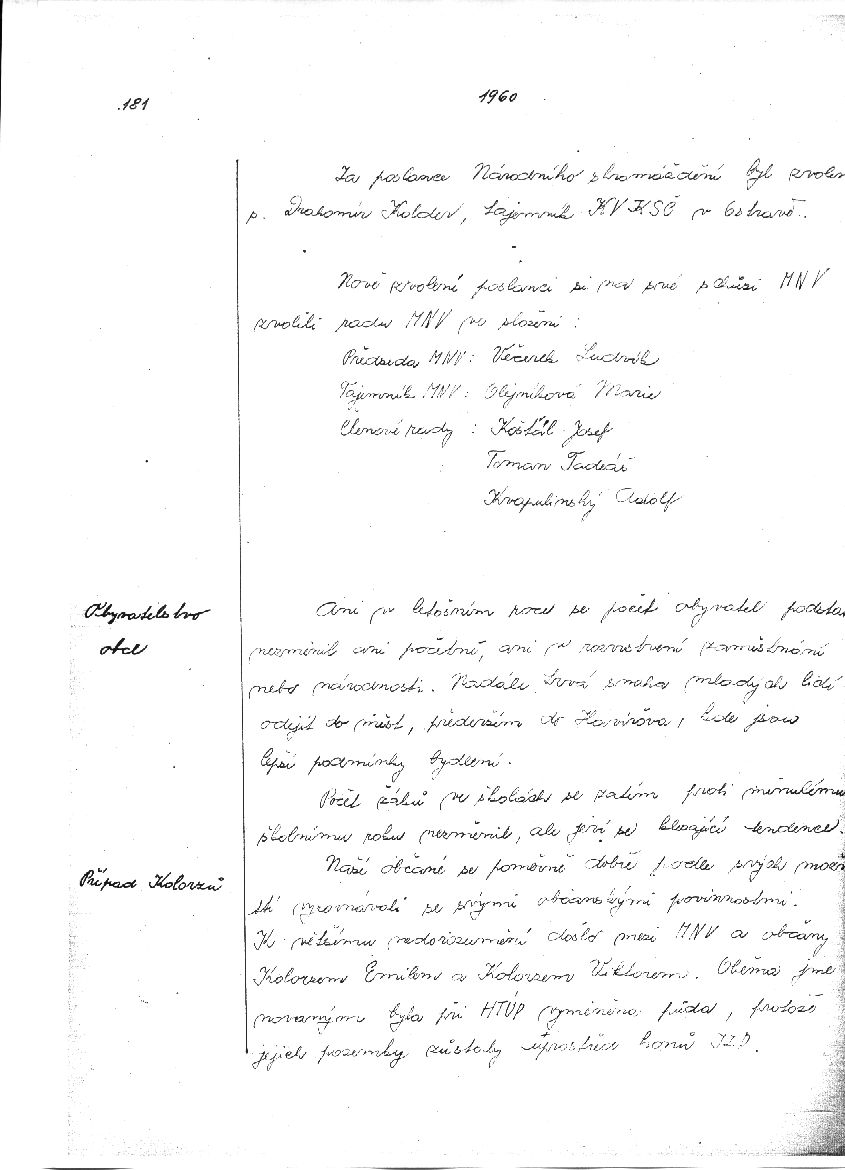 181
1960
Za poslance Národního shromáždění byl zvolen
s. Drahomír Kolder, tajemník KV KSČ v Ostravě.
Nově zvolení poslanci si na své schůzi MNV
zvolili radu MNV ve složení:
Předseda MNV: Večerek Ludvík
Tajemník MNV: Olejníková Marie
Členové rady: Košťál Josef
Toman Tadeáš
Kvapulinský Adolf
Obyvatelstvo
obce
Ani v letošním roce se počet obyvatel podsta
nezměnil ani početně, ani v rozvrstvení zaměstnání
nebo národnosti. Nadále trvá snaha mladých lidí
odejít do měst, především do Havířova, kde jsou
lepší podmínky bydlení.
Počet žáků ve školách se zatím proti minulému
školnímu roku nezměnil, ale jeví se klesající tendence.
Případ Kolorzů
Naši občané se poměrně dobře podle svých možno
stí vyrovnávali se svými občanskými povinnostmi.
K většímu nedorozumění došlo mezi MNV a občany
Kolorzem Emilem a Kolorzem Viktorem. Oběma jme
novaným byla při HTÚP vyměněna půda, protože
jejich pozemky zůstaly uprostřed honů JZD.